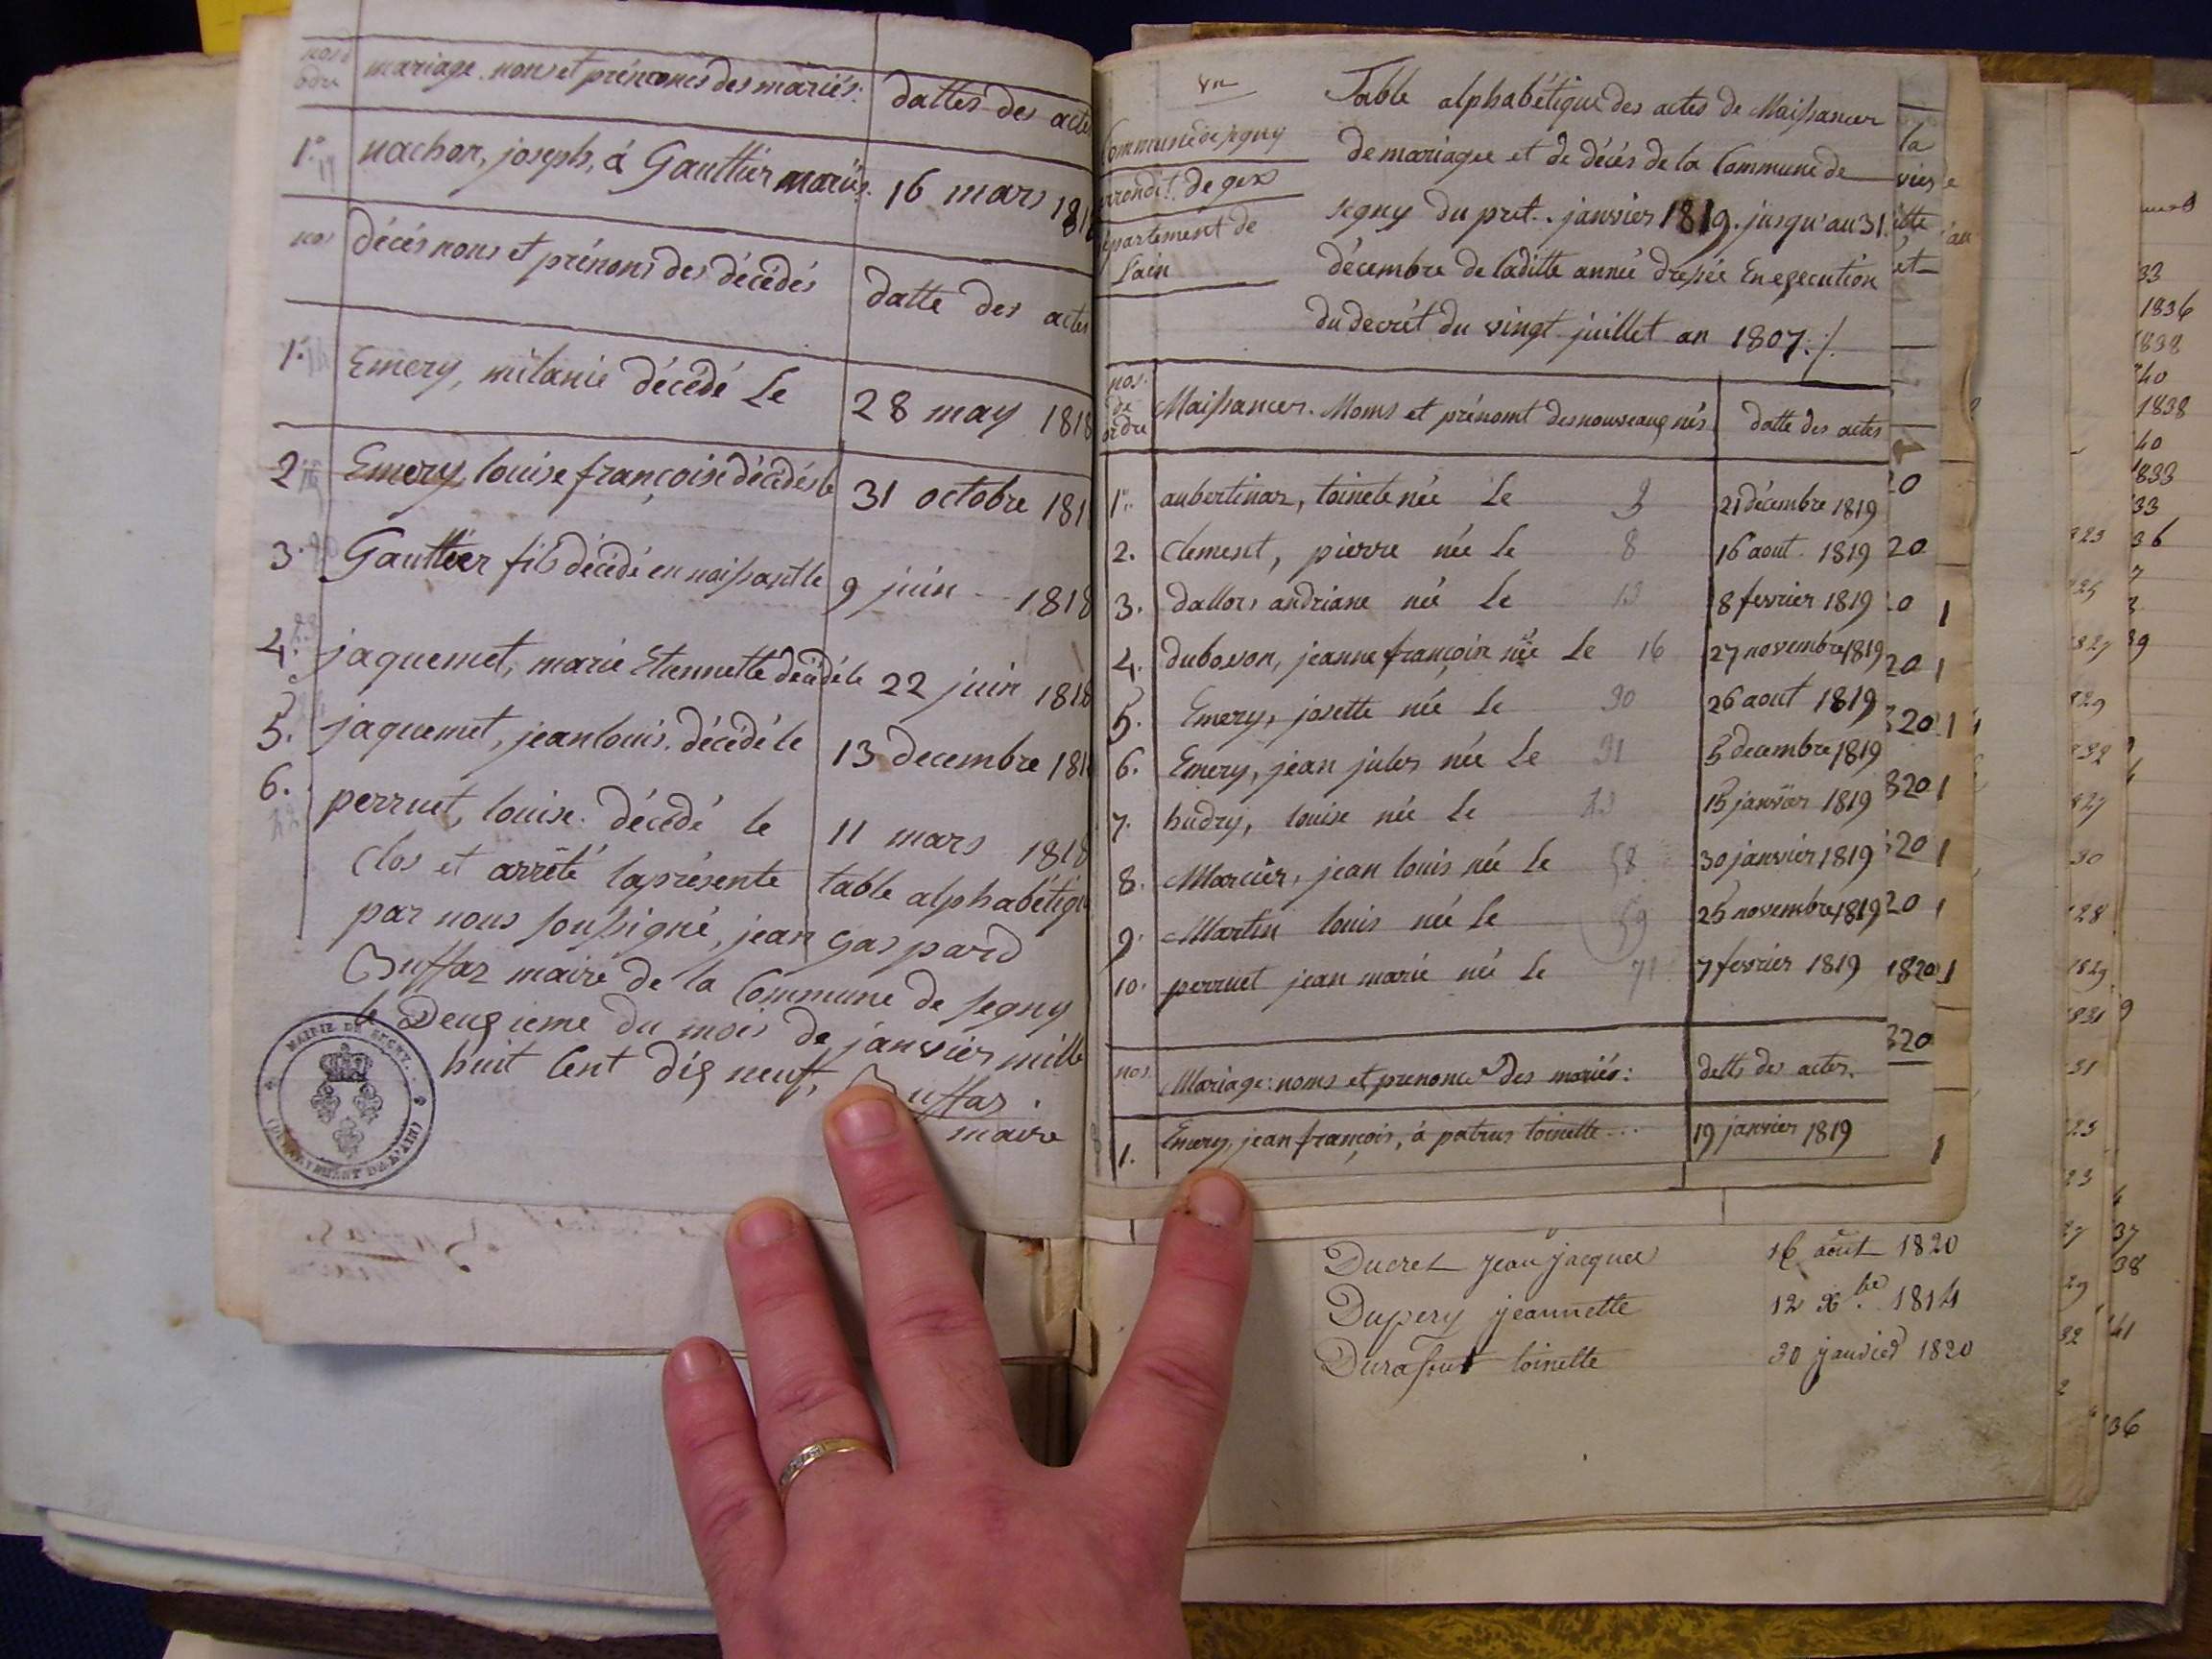 nos d'
odre
mariage. noms et prénoms des mariés:
dattes des actes
1.º
nachon, joseph, à Gauthier mariés.
16 mars 181
nos
décés noms et prénoms des décédés
datte des actes
1.º
Emery, mélanie décédé Le
28 may 1818
2
Emery, louise françoise décédés le
31 octobre 181
3.
Gauthier fils décédé en naissant le
9 juin 1818
4.
jaquemet, marie Etiennette décédé le
22 juin 1818
5.
jaquemet, jean louis. décédé le
13 decembre 181
6.
perruet, louise. décédé le
11 mars 1818
Clos et arrêté la présente table alphabétiq
par nous soussigné, jean gaspard
Buffaz maire de la Commune de Segny
le Deuxieme du mois de janvier mille
huit Cent dix neuf, Buffaz.
maire
MAIRIE DE SEGNY.
(DEPARTEMENT DE L'AIN)
Commune de segny
rrondit. de gex
epartement de
L'ain
Table alphabétique des actes de Naissances
de mariages et de décés de la Commune de
segny du pret. janvier 1819. jusqu'au 31.
décembre de laditte année dressée En execution
du decret du vingt juillet an 1807./.
nos.
de
ordre
Naissances. Noms et prénoms des nouveaux nés
datte des actes
1.º aubertinaz, toinete née Le 3 21 décembre 1819
2. Clement, pierre née Le 8 16 aout 1819
3. dallois andriane née Le 13 18 fevrier 1819
4. duboson, jeanne françoise née Le 16 27 novembre 1819
5. Emery, josette née Le 30 26 aout 1819
6. Emery, jean jules née Le 31 5 decembre 1819
7. hudry, louise née Le 15 janvier 1819
8. Marcier, jean louis née Le 58 30 janvier 1819
9. Martin louis née Le 59 25 novembre 1819
10. perruet jean marie née Le 71 7 fevrier 1819
nos.
Mariage: noms et prenoms Des mariés:
datte des actes.
1. Emery, jean françois, à patrus toinette... 19 janvier 1819
Ducret Jean Jacques 16 août 1820
Dupery jeannette 12 Xbre 1814
Durafour toinette 30 janvier 1820
1836
1838
1838
1833